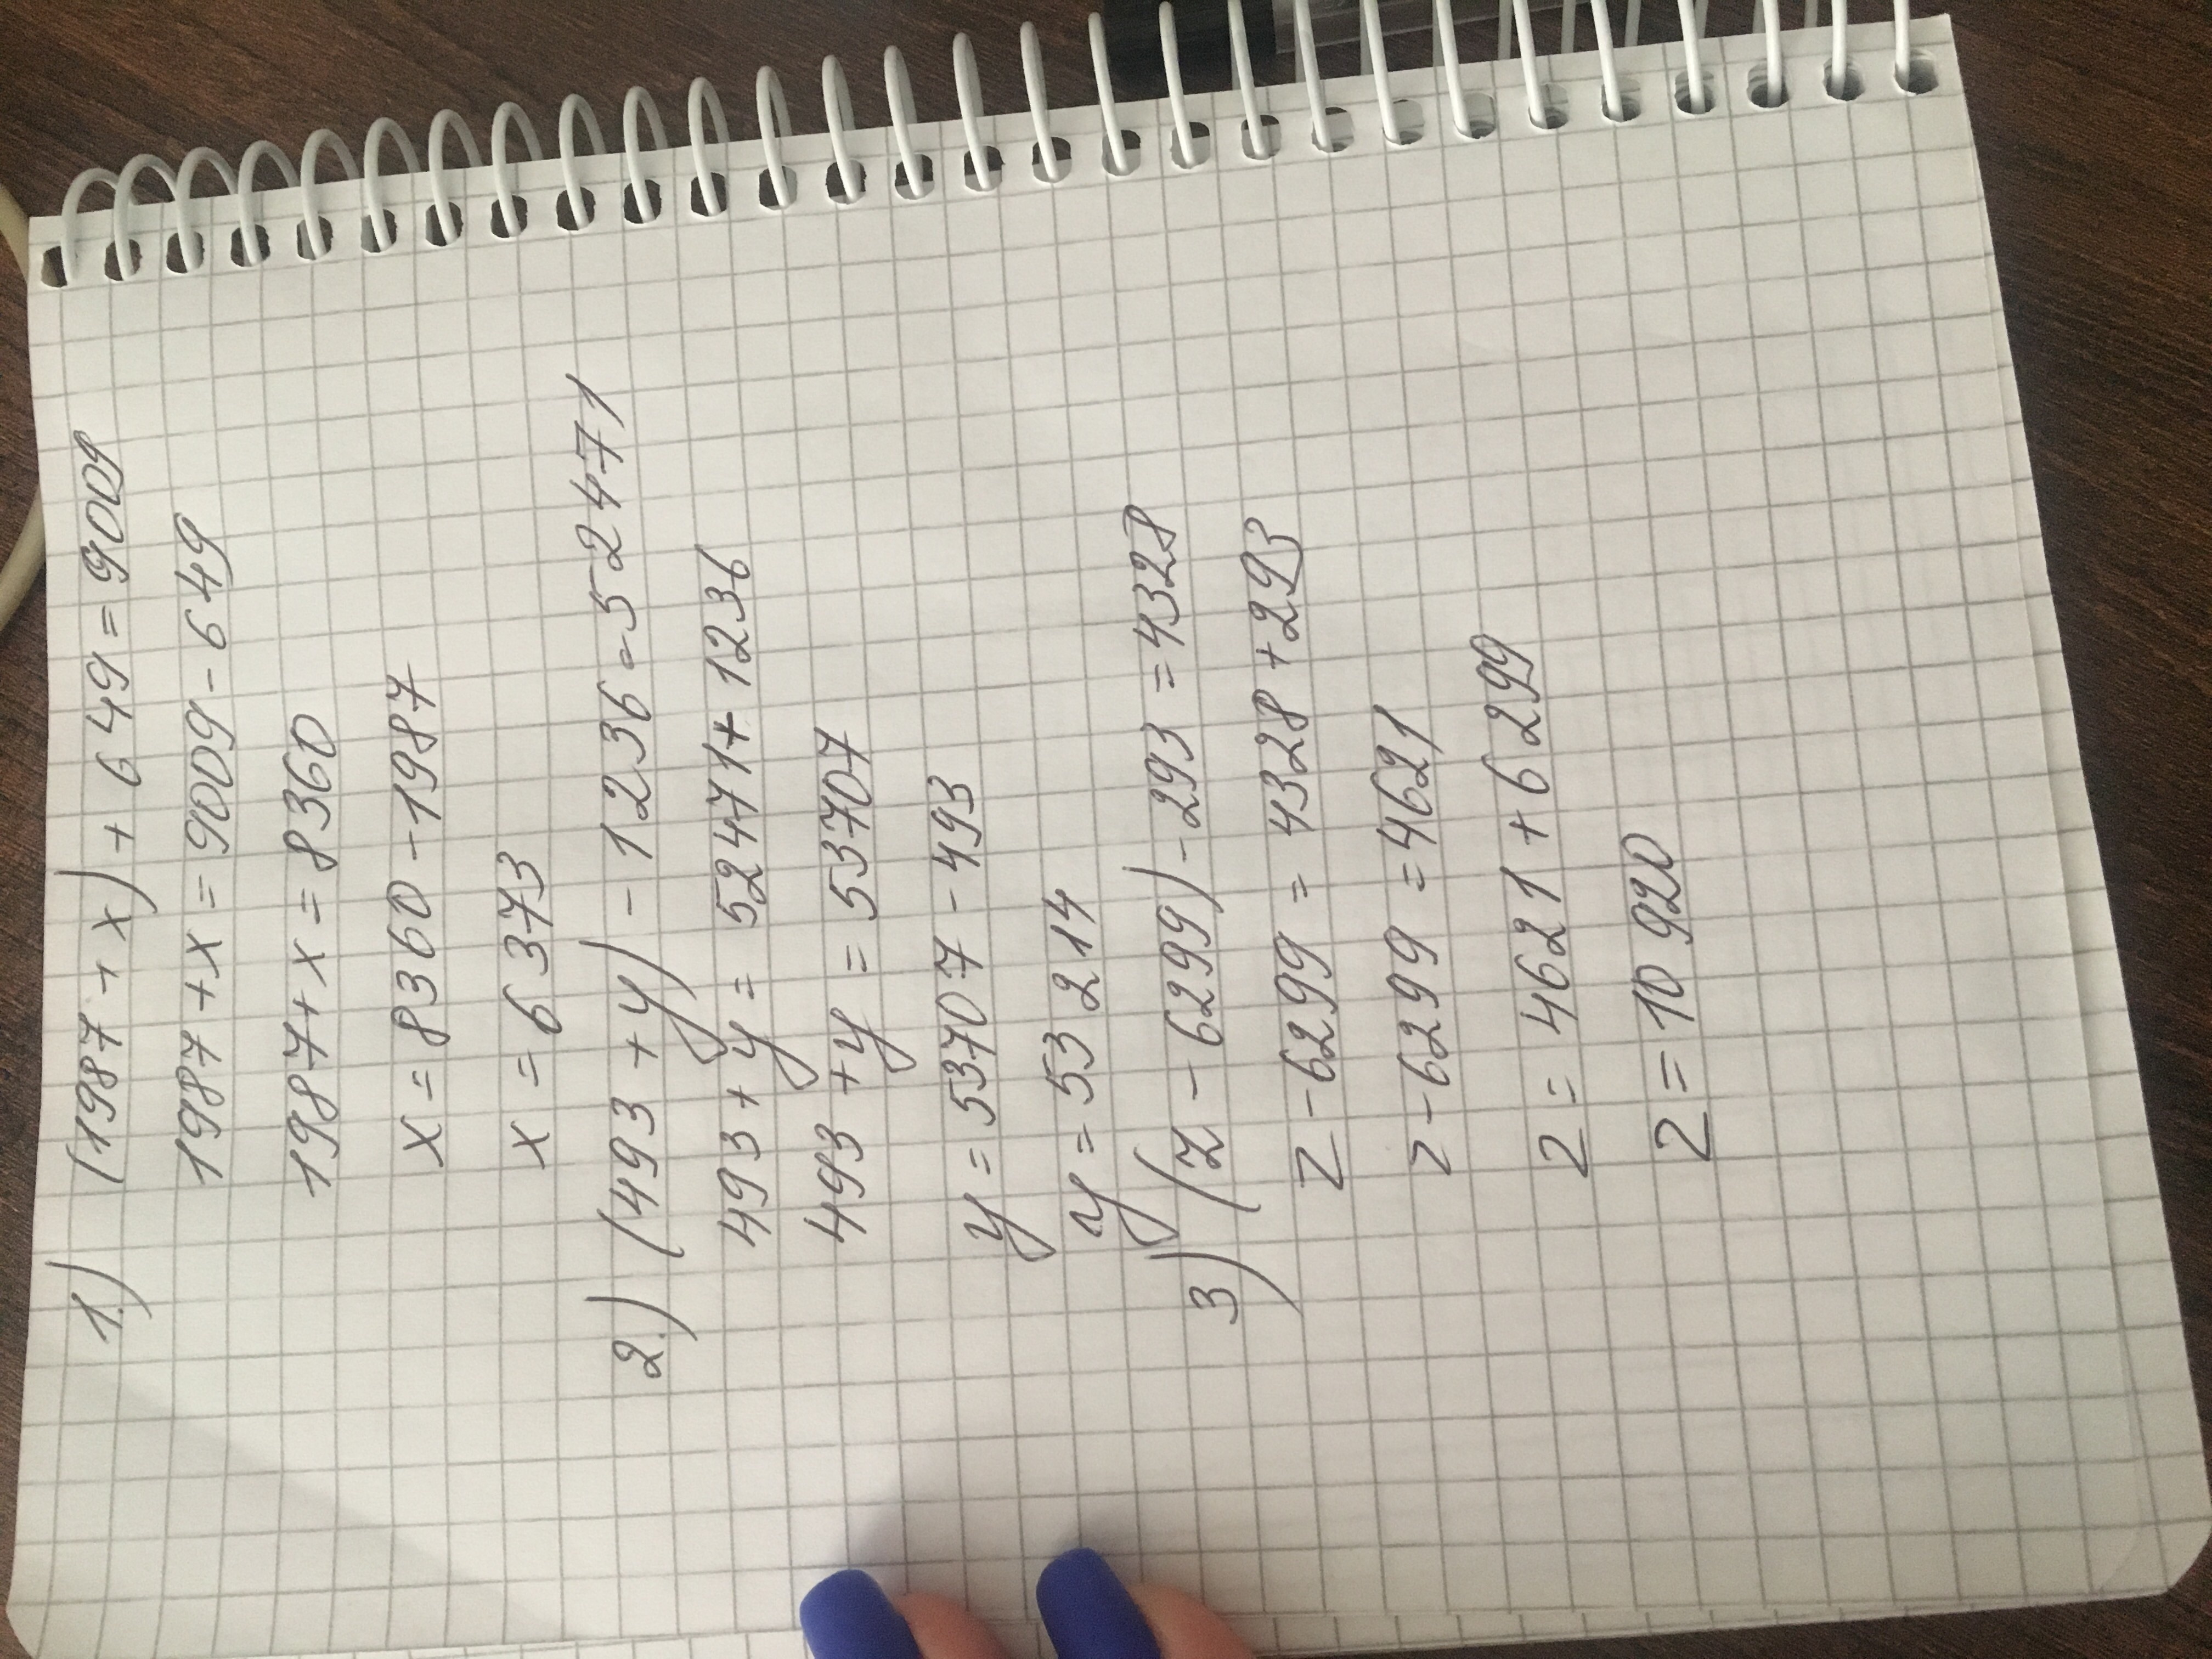 1.) (1987 + x) + 649 = 9009
1987 + x = 9009 - 649
1987 + x = 8360
x = 8360 - 1987
x = 6373
2.) (493 + y) - 1236 = 52471
493 + y = 52471 + 1236
493 + y = 53707
y = 53707 - 493
y = 53214
3) (z - 6299) - 293 = 4328
z - 6299 = 4328 + 293
z - 6299 = 4621
z = 4621 + 6299
z = 10920